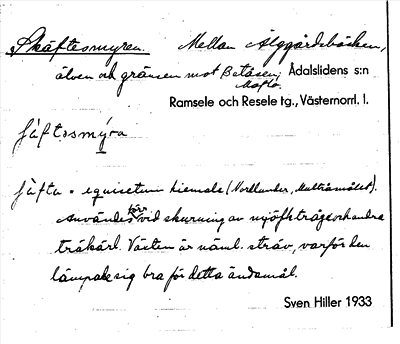 Skäftesmyren. Mellan Älggårdsbäcken,
älven och gränsen mot Betåsen, Ådalslidens s:n
Ramsele och Resele tg., Västernorrl. l.
jäftesmýra
jäfta = equisetum hiemale (Nordlander, Multråmålet).
Användes förr vid skurning av mjölktråg och andra
träkärl. Växten är näml. sträv, varför den
lämpade sig bra för detta ändamål.
Sven Hiller 1933